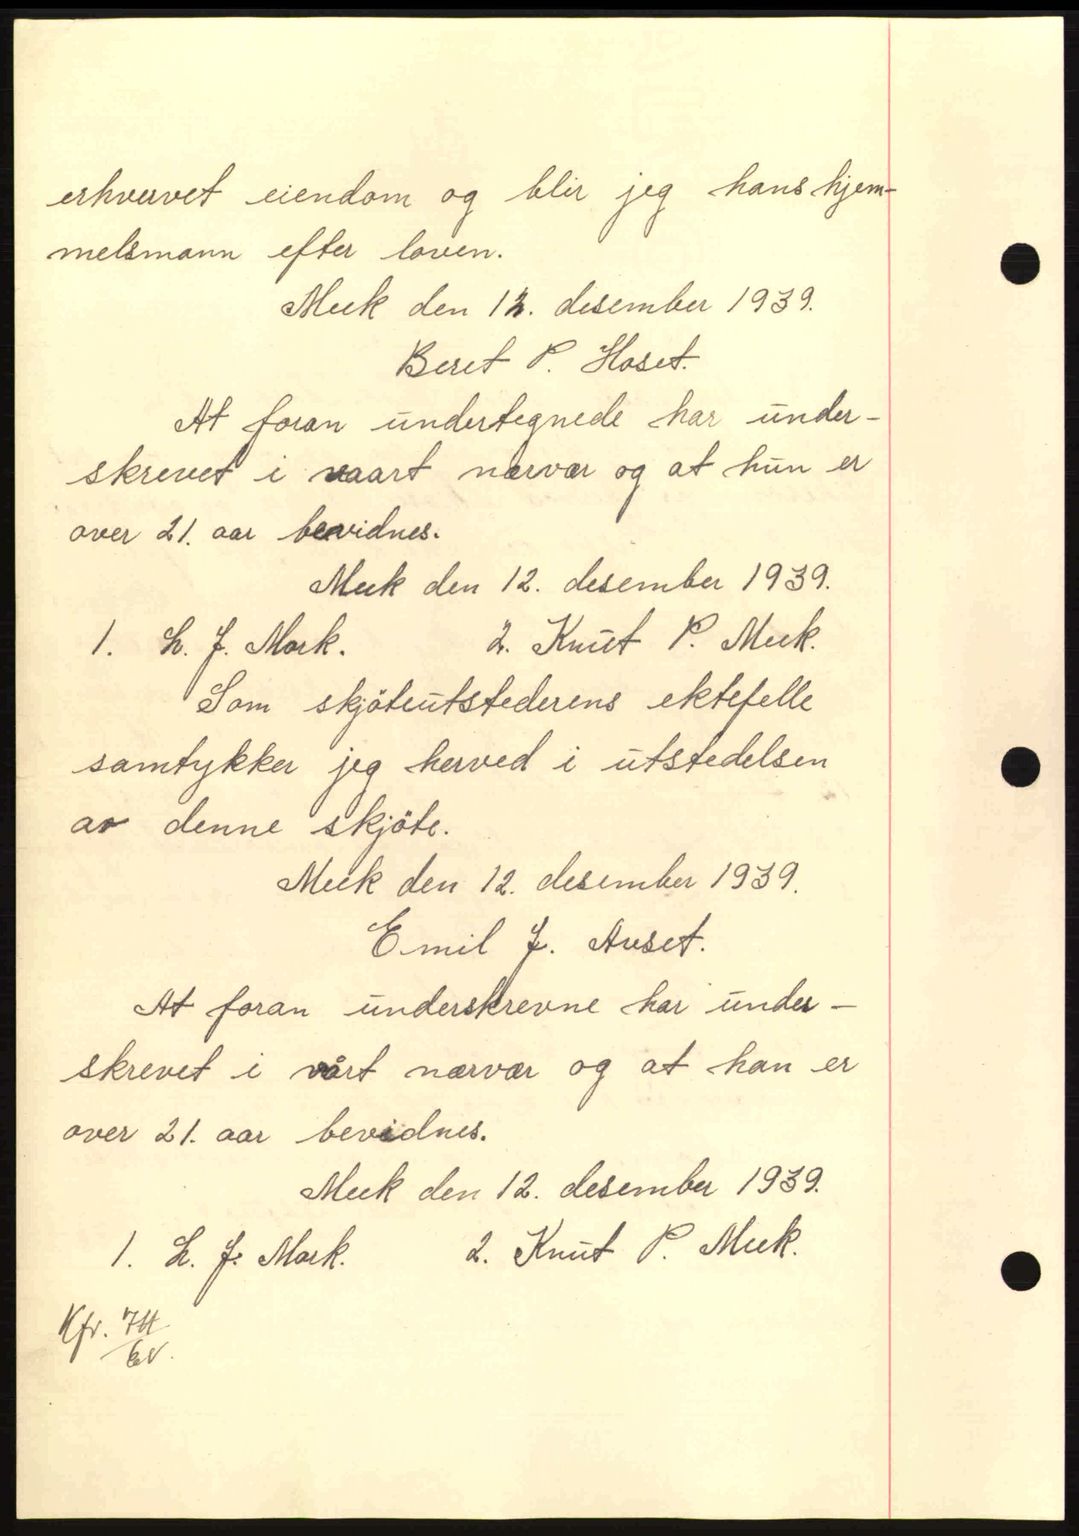 erhvervet eiendom og blir jeg hans hjem-
melsmann efter loven.
Meek den 12. desember 1939.
Beret P. Hoset.
At foran undertegnede har under-
skrevet i vaart nærvær og at hun er
over 21. aar bevidnes.
Meek den 12. desember 1939.
1. L. J. Mork. 2. Knut P. Meek.
Som skjöteutstederens ektefelle
samtykker jeg herved i utstedelsen
av denne skjöte.
Meek den 12. desember 1939.
Emil J. Avset.
At foran underskrevne har under-
skrevet i vårt nærvær og at han er
over 21. aar bevidnes.
Meek den 12. desember 1939.
1. L. J. Mork. 2. Knut P. Meek.
Kfr.